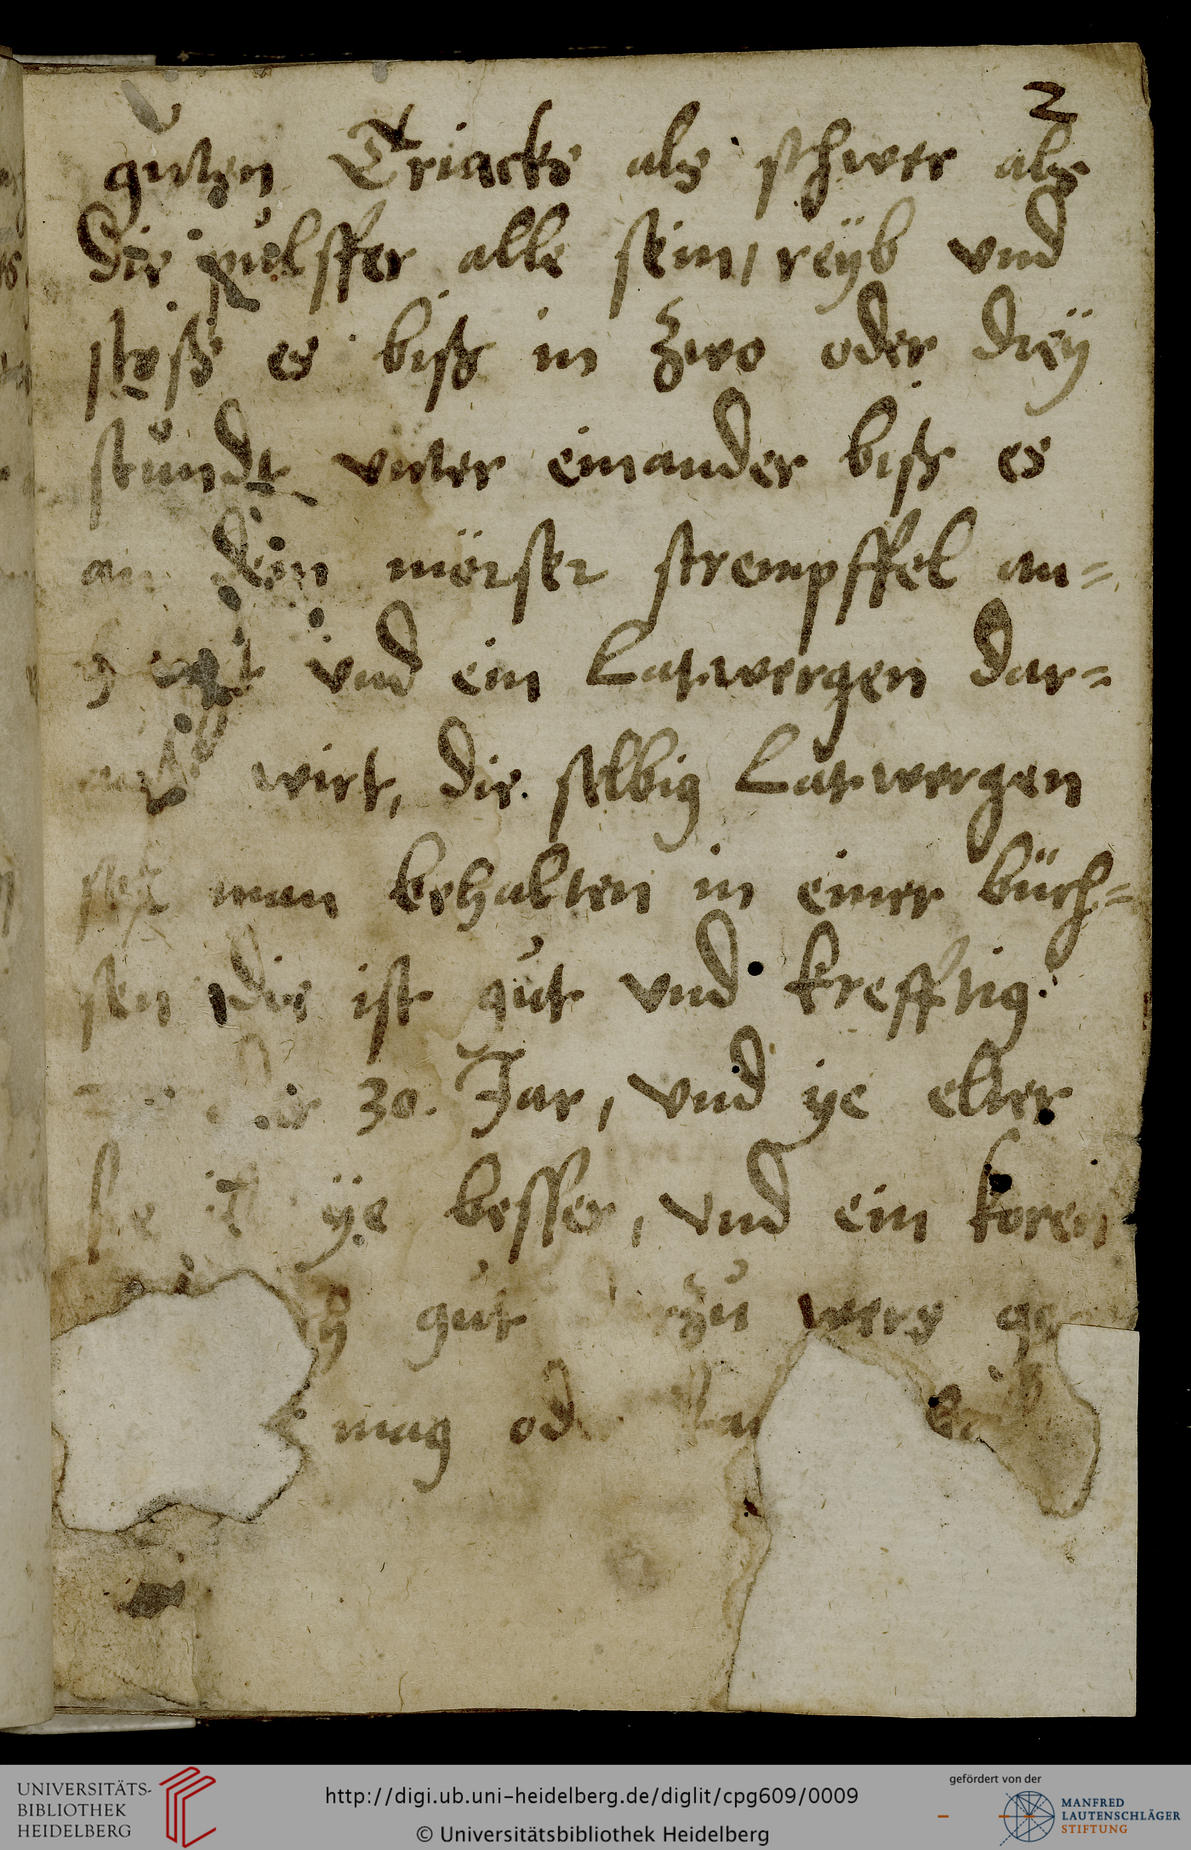 2
guten Triacks als schwer als
die pulffer alle sein, reÿb vnd
stoß es biß in zwo oder dreÿ
stundt vnter einander biß es
an dein mörser strempffel an=
vnd ein Latwergen dar=
wirt, die selbig Latwergen
man behalten in einer büch=
sen die ist gut vnd krefftig
30. Jar, vnd ye elter
sie ÿe besser, vnd ein koren
gut zu
mag
UNIVERSITÄTS-
BIBLIOTHEK
HEIDELBERG
http://digi.ub.uni-heidelberg.de/diglit/cpg609/0009
© Universitätsbibliothek Heidelberg
gefördert von der
MANFRED
LAUTENSCHLÄGER
STIFTUNG